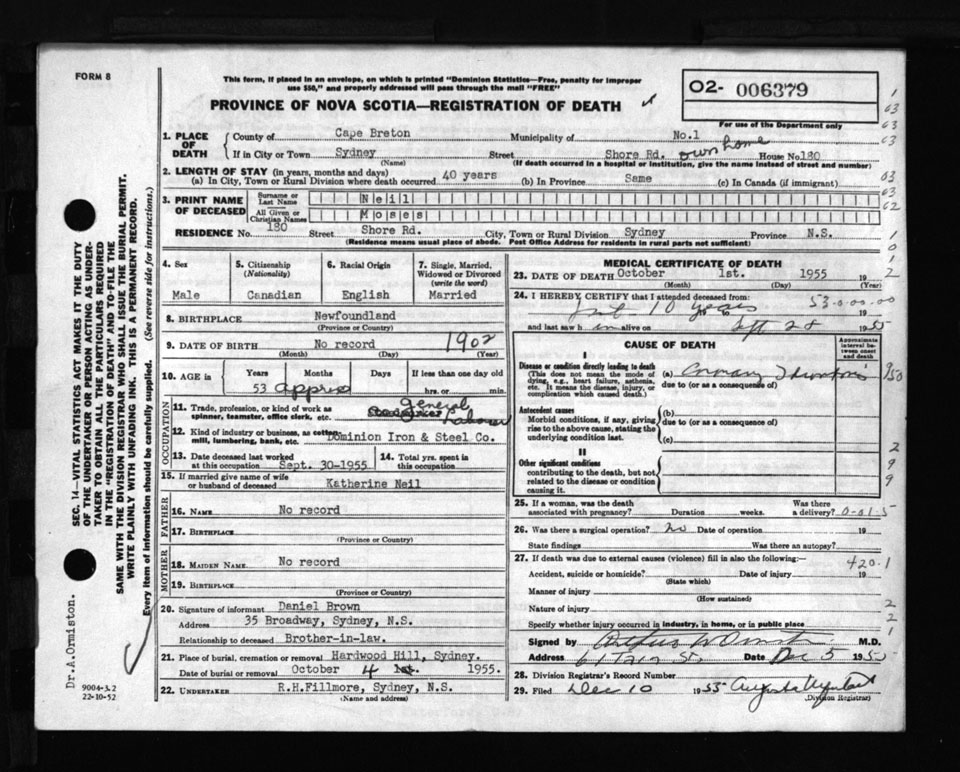 FORM 8
This form, if placed in an envelope, on which is printed "Dominion Statistics—Free, penalty for improper
use $50," and properly addressed will pass through the mail "FREE"
PROVINCE OF NOVA SCOTIA—REGISTRATION OF DEATH
O2- 006379
For use of the Department only
1. PLACE OF DEATH
County of Cape Breton Municipality of No.1
If in City or Town Sydney Street Shore Rd. own home House No 130
(Name) (If death occurred in a hospital or institution, give the name instead of street and number)
2. LENGTH OF STAY (in years, months and days)
(a) In City, Town or Rural Division where death occurred 40 years (b) In Province Same (c) In Canada (if immigrant)
3. PRINT NAME OF DECEASED
Surname or Last Name Neil
All Given or Christian Names Moses
RESIDENCE No. 130 Street Shore Rd. City, Town or Rural Division Sydney Province N.S.
(Residence means usual place of abode. Post Office Address for residents in rural parts not sufficient)
4. Sex
Male
5. Citizenship
(Nationality)
Canadian
6. Racial Origin
English
7. Single, Married,
Widowed or Divorced
(write the word)
Married
8. BIRTHPLACE Newfoundland
(Province or Country)
9. DATE OF BIRTH No record 1902
(Month) (Day) (Year)
10. AGE in
Years Months Days If less than one day old
53 approx hrs. or min.
OCCUPATION
11. Trade, profession, or kind of work as
spinner, teamster, office clerk, etc. general Laborer
12. Kind of industry or business, as cotton-
mill, lumbering, bank, etc. Dominion Iron & Steel Co.
13. Date deceased last worked
at this occupation Sept. 30-1955
14. Total yrs. spent in
this occupation
15. If married give name of wife
or husband of deceased Katherine Neil
FATHER
16. NAME No record
17. BIRTHPLACE
(Province or Country)
MOTHER
18. MAIDEN NAME No record
19. BIRTHPLACE
(Province or Country)
20. Signature of informant Daniel Brown
Address 35 Broadway, Sydney, N.S.
Relationship to deceased Brother-in-law.
21. Place of burial, cremation or removal Hardwood Hill, Sydney.
Date of burial or removal October 4 1st. 1955.
22. UNDERTAKER R.H.Fillmore, Sydney, N.S.
(Name and address)
MEDICAL CERTIFICATE OF DEATH
23. DATE OF DEATH October 1st. 1955 19
(Month) (Day) (Year)
24. I HEREBY CERTIFY that I attended deceased from: 53.0.00.00
10 years 19
and last saw h im alive on Sept 28 1955
CAUSE OF DEATH
Approximate
interval be-
tween onset
and death
I
Disease or condition directly leading to death
(This does not mean the mode of
dying, e.g., heart failure, asthenia,
etc. It means the disease, injury, or
complication which caused death.)
(a) Coronary Thrombosis
due to (or as a consequence of)
Antecedent causes
Morbid conditions, if any, giving
rise to the above cause, stating the
underlying condition last.
(b)
due to (or as a consequence of)
(c)
II
Other significant conditions
contributing to the death, but not
related to the disease or condition
causing it.
25. If a woman, was the death
associated with pregnancy? Duration weeks. Was there
a delivery? 0-01-5
26. Was there a surgical operation? No Date of operation 19
State findings Was there an autopsy?
27. If death was due to external causes (violence) fill in also the following:— 420.1
Accident, suicide or homicide? Date of injury 19
(State which)
Manner of injury
(How sustained)
Nature of injury
Specify whether injury occurred in industry, in home, or in public place
Signed by M.D.
Address Date Dec 5 1955
28. Division Registrar's Record Number
29. Filed Dec 10 1955
Division Registrar.
SEC. 14—VITAL STATISTICS ACT MAKES IT THE DUTY
OF THE UNDERTAKER OR PERSON ACTING AS UNDER-
TAKER TO OBTAIN ALL THE PARTICULARS REQUIRED
IN THE "REGISTRATION OF DEATH" AND TO-FILE THE
SAME WITH THE DIVISION REGISTRAR WHO SHALL ISSUE THE BURIAL PERMIT.
WRITE PLAINLY WITH UNFADING INK. THIS IS A PERMANENT RECORD.
Every item of information should be carefully supplied. (See reverse side for instructions.)
Dr.A.Ormiston.
9004-3.2
22-10-52